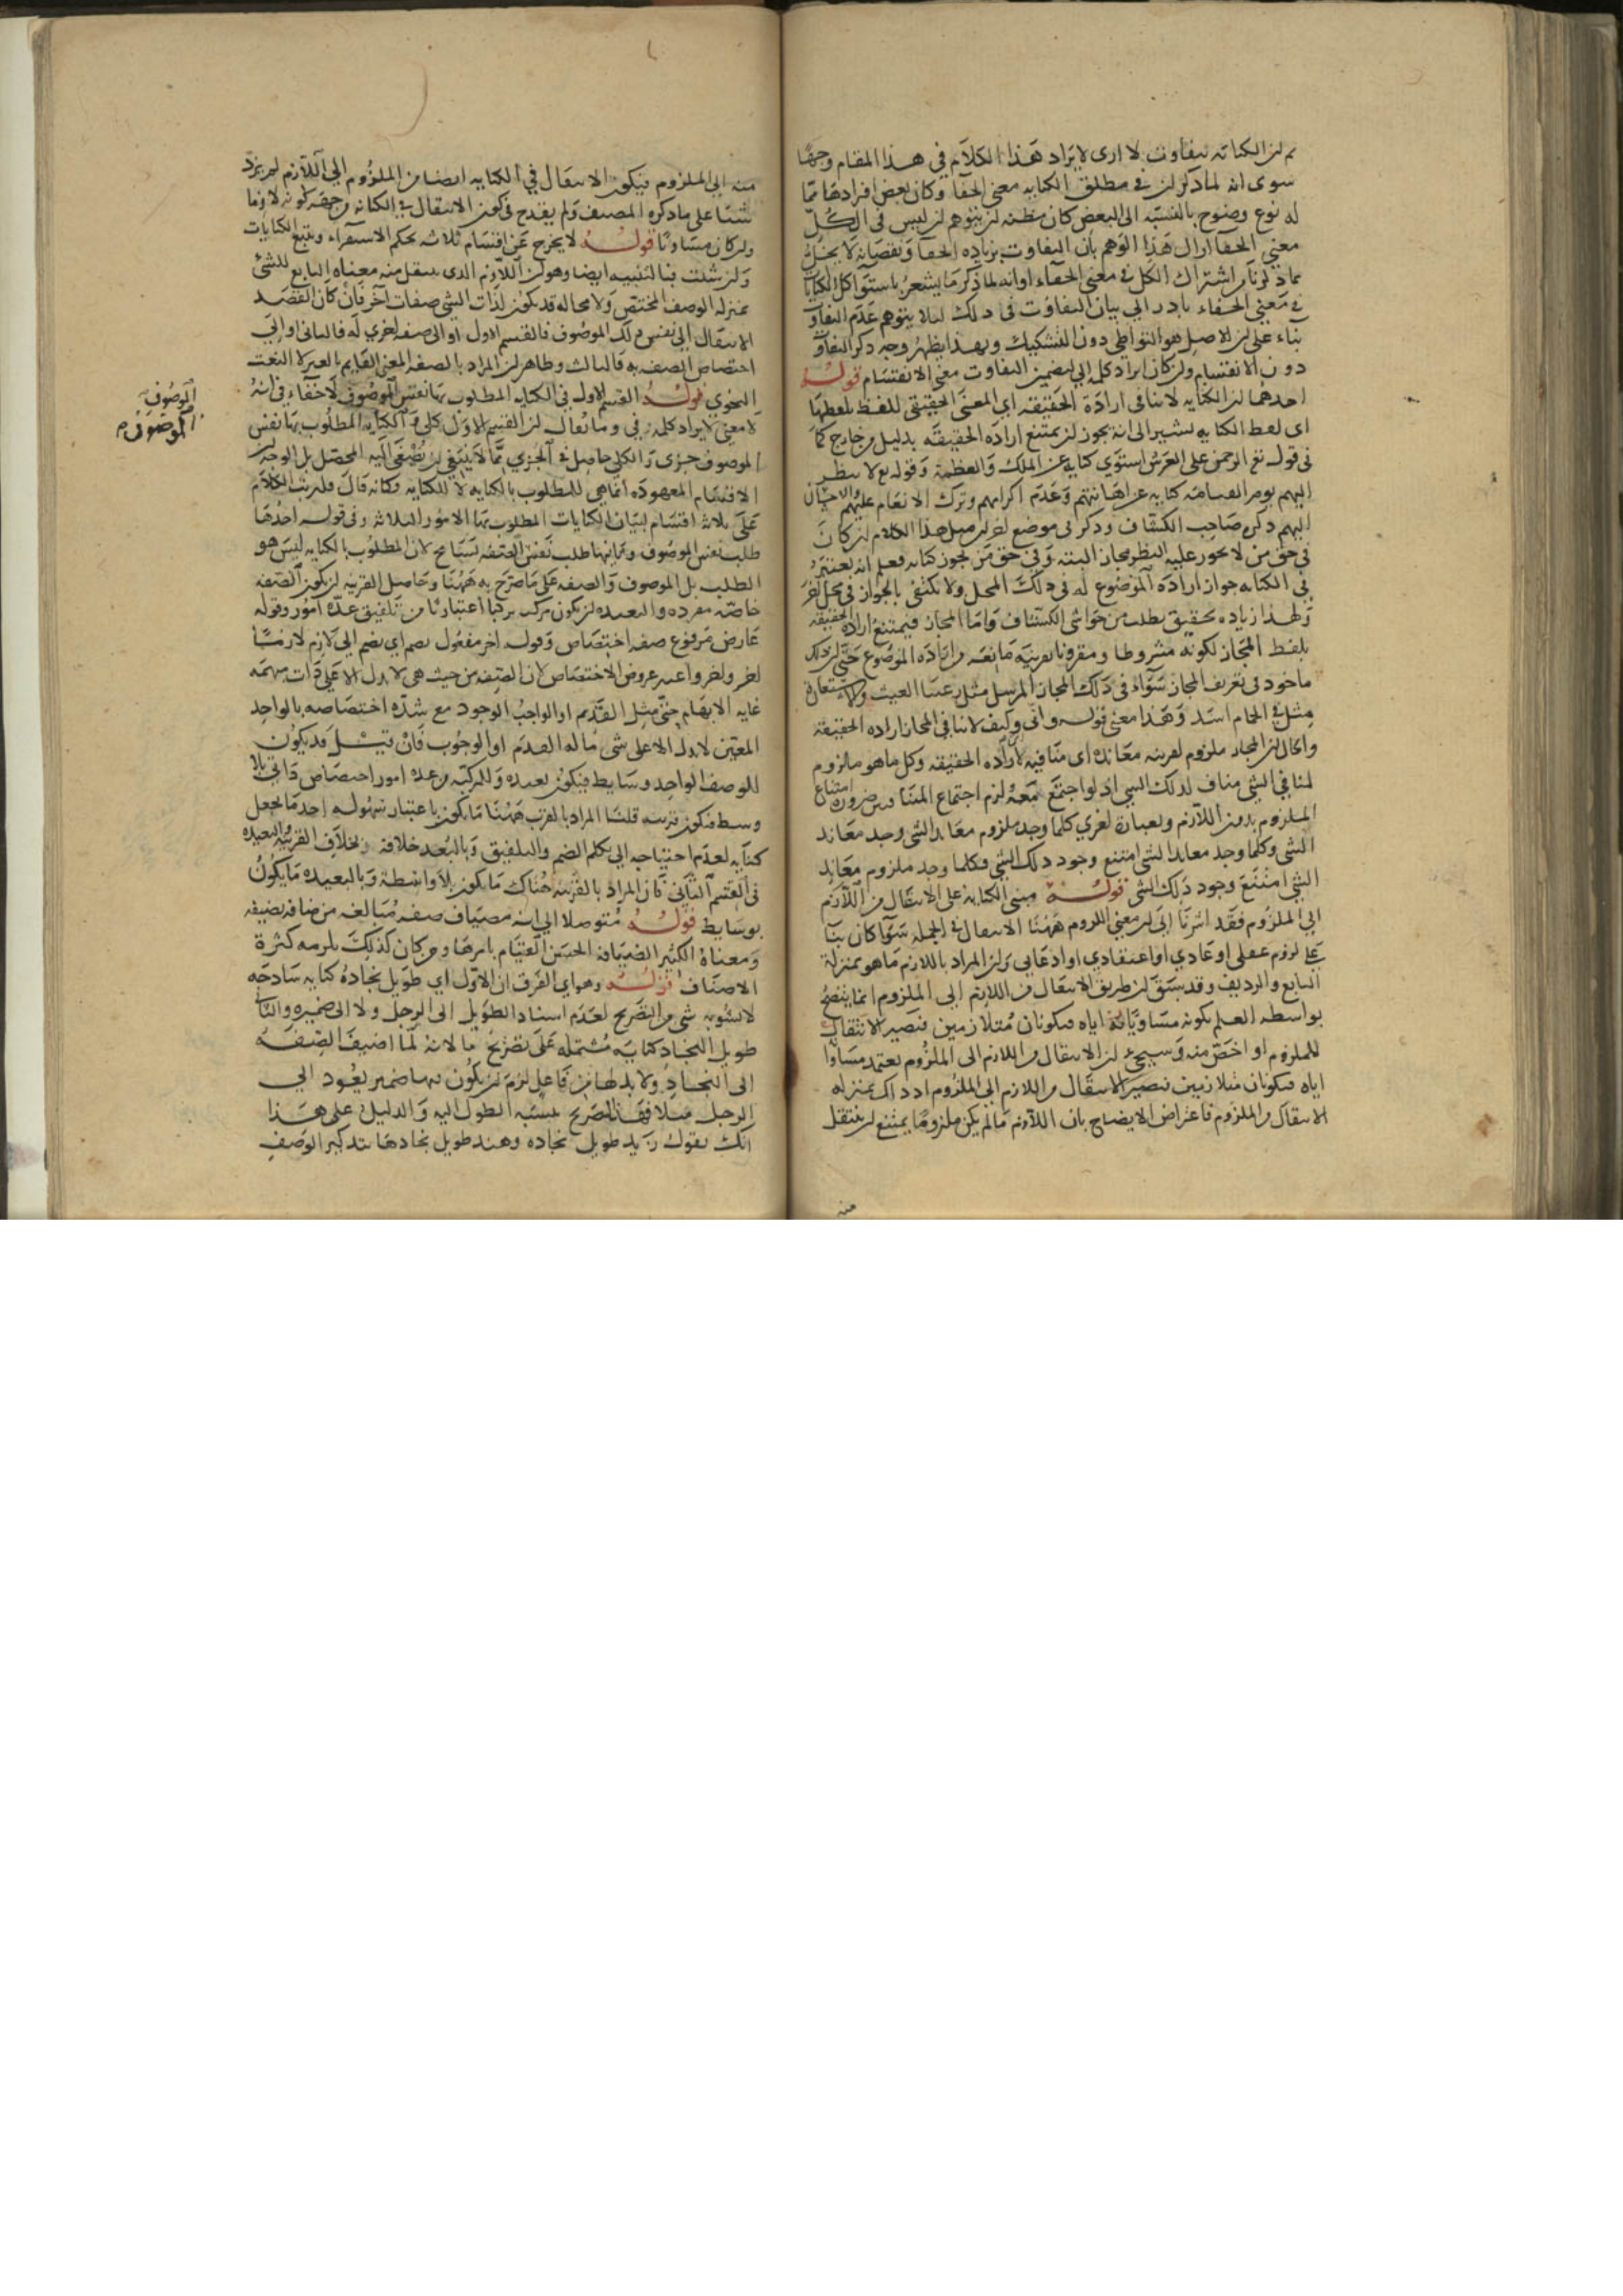 ثم ان الكناية تتفاوت لا ارى لايراد هذا الكلام في هذا المقام وجها
سوى انه لما ذكر ان في مطلق الكناية معنى الخفا وكان بعض افرادها مما
له نوع وضوح بالنسبة الى البعض كان مظنة ان يتوهم ان ليس في الكل
معنى الخفا ازال هذا الوهم بان التفاوت بزيادة الخفا ونقصانه لا يخل
بما ذكرنا من اشتراك الكل في معنى الخفاء او انه لما ذكر ما يشعر باستواء كل الكنايات
في معنى الخفاء بادر الى بيان التفاوت في ذلك لئلا يتوهم عدم التفاوت
بناء على ان الاصل هو التواطي دون التشكيك وبهذا يظهر وجه ذكر التفاوت
دون الانقسام وان كان ايراد كلمة الى لتضمين التفاوت معنى الانقسام قوله
احدهما ان الكناية لا تنافى ارادة الحقيقة اي المعنى الحقيقي للفظ بلفظها
اى لفظ الكناية تشير الى انه يجوز ان يمتنع ارادة الحقيقة بدليل من خارج كما
فى قوله تع الرحمن على العرش استوى كناية عن الملك والعظمة وقوله تع لا ينظر
اليهم يوم القيامة كناية عن اهانتهم وعدم اكرامهم وترك الانعام عليهم والاحسان
اليهم ذكره صاحب الكشاف وذكر فى موضع اخر ان مثل هذا الكلام ان كان
فى حق من لا يجوز عليه النظر مجاز البتة وفى حق من يجوز كناية فعلم انه يعتبر
فى الكناية جواز ارادة الموضوع له فى ذلك المحل ولا يكتفى بالجواز فى محل اخر
ولهذا زيادة تحقيق يطلب من حواشى الكشاف واما المجاز فيمتنع ارادة الحقيقة
بلفظ المجاز لكونه مشروطا ومقرونا بقرينة مانعة من ارادة الموضوع حتى ان ذلك
ماخوذ فى تعريف المجاز سواء فى ذلك المجاز المرسل مثل رعينا الغيث والاستعارة
مثل فى الحمام اسد وهذا معنى قوله وانى وكيف لا ينافى المجاز ارادة الحقيقة
والحال ان المجاز ملزوم لقرينة معاندة اى منافية لارادة الحقيقة وكل ما هو ملزوم
لمنافى الشى مناف لذلك الشى اذ لو اجتمع معه لزم اجتماع المتنافيين ضرورة امتناع
الملزوم بدون اللازم وبعبارة اخرى كلما وجد ملزوم معاند الشى وجد معاند
الشى وكلما وجد معاند الشى امتنع وجود ذلك الشى فكلما وجد ملزوم معاند
الشى امتنع وجود ذلك الشى قوله مبنى الكناية على الانتقال من اللازم
الى الملزوم فقد اشرنا الى ان معنى اللزوم ههنا الانتقال فى الجملة سواء كان بناء
على لزوم عقلى او عادي او اعتقادي او ادعايى وان المراد باللازم ما هو بمنزلة
التابع والرديف وقد سبق ان طريق الانتقال من اللازم الى الملزوم انما يتضح
بواسطه العلم بكونه مساويا اياه فيكونان متلازمين فيصير الانتقال
للملزوم او اخص منه وسيجىء ان الانتقال من اللازم الى الملزوم يعتمد مساواة
اياه فيكونان متلازمين فيصير الانتقال من اللازم الى الملزوم اذ ذاك بمنزلة
الانتقال من الملزوم فاعتراض الايضاح بان اللازم ما لم يكن ملزوما يمتنع ان ينتقل
منه
منه الى الملزوم فيكون الانتقال في الكناية ايضا من الملزوم الى اللازم لم يزد
شيئا على ما ذكره المصنف ولم يقدح فى كون الانتقال فى الكناية من جهة كونه لازما
وان كان مساويا قوله لا يخرج عن اقسام ثلاثة بحكم الاستقراء وتتبع الكنايات
وان شئت فبالتنبيه ايضا وهو ان اللازم الذى ينتقل منه معناه التابع للشئ
بمنزله الوصف المختص ولا محاله قد يكون لذات الشى صفات اخر فان كان القصد
الانتقال الى نفس ذلك الموصوف فالقسم الاول او الى صفة اخرى له فالثانى او الى
اختصاص الصفة به فالثالث وظاهر ان المراد بالصفة المعنى القايم بالغير لا النعت
النحوي قوله القسم الاول فى الكناية المطلوب بها نفس الموصوف لا خفاء فى انه
لا معنى لايراد كلمة فى وما يقال ان القسم الاول كلى والكناية المطلوب بها نفس
الموصوف جزى والكلى حاصل فى الجزى مما لا ينبغى ان يصغى اليه المحصل بل الوجه ان
الاقسام المعهودة انما هى للمطلوب بالكناية لا للكناية وكانه قال قد رتبت الكلام
على ثلاثة اقسام لبيان الكنايات المطلوب بها الامور الثلاثة وفى قوله احدها
طلب نفس الموصوف وثانيها طلب نفس الصفة تسامح لان المطلوب بالكناية ليس هو
الطلب بل الموصوف والصفة على ما صرح به ههنا وحاصل القريبة ان يكون الصفة
خاصة مفردة والبعيدة ان يكون مركبه تركبا اعتباريا من تلفيق عدة امور وقوله
عارض مرفوع صفة اختصاص وقوله اخر مفعول يضم اي يضم الى لازم لازما
اخر واخر واعتبر عروض الاختصاص لان الصفة من حيث هى لا يدل الا على ذات مبهمة
غاية الابهام حتى مثل القديم او الواجب الوجود مع شدة اختصاصه بالواحد
المعين لا يدل الا على شى ما له القدم او الوجوب فان قيل قد يكون
للوصف الواحد وسايط فيكون بعيدة وللمركبة من عدة امور اختصاص ذاتى بلا
وسط فيكون قريبة قلنا المراد بالقرب ههنا ما يكون باعتبار سهولة احدها لجعل
كناية لعدم احتياجه الى تكلف الضم والتلفيق وبالبعد خلافه بخلاف القريبة والبعيدة
فى القسم الثانى فان المراد بالقريبة هناك ما يكون بلا واسطة وبالبعيدة ما يكون
بوسايط قوله متوصلا الى انه مضياف صفة مبالغة من ضافه يضيفه
ومعناه الكثير الضيافة الحسن القيام بامرها ومن كان كذلك يلزمه كثرة
الاصناف قوله وهو اي الفرق ان الاول اي طويل نجاده كناية ساذجه
لا يشوبه شى من التصريح لعدم اسناد الطويل الى الرجل ولا الى ضميره والثانى
طويل النجاد كناية مشتملة على تصريح ما لانه لما اضيف الصفة
الى النجاد ولا بد لها من فاعل لزم ان يكون بها ضمير يعود الى
الرجل مثلا فهذا تصريح بنسبة الطول اليه والدليل على هذا
انك تقول زيد طويل نجاده وهند طويل نجادها بتذكير الوصف
الموصوف
الموصوف م